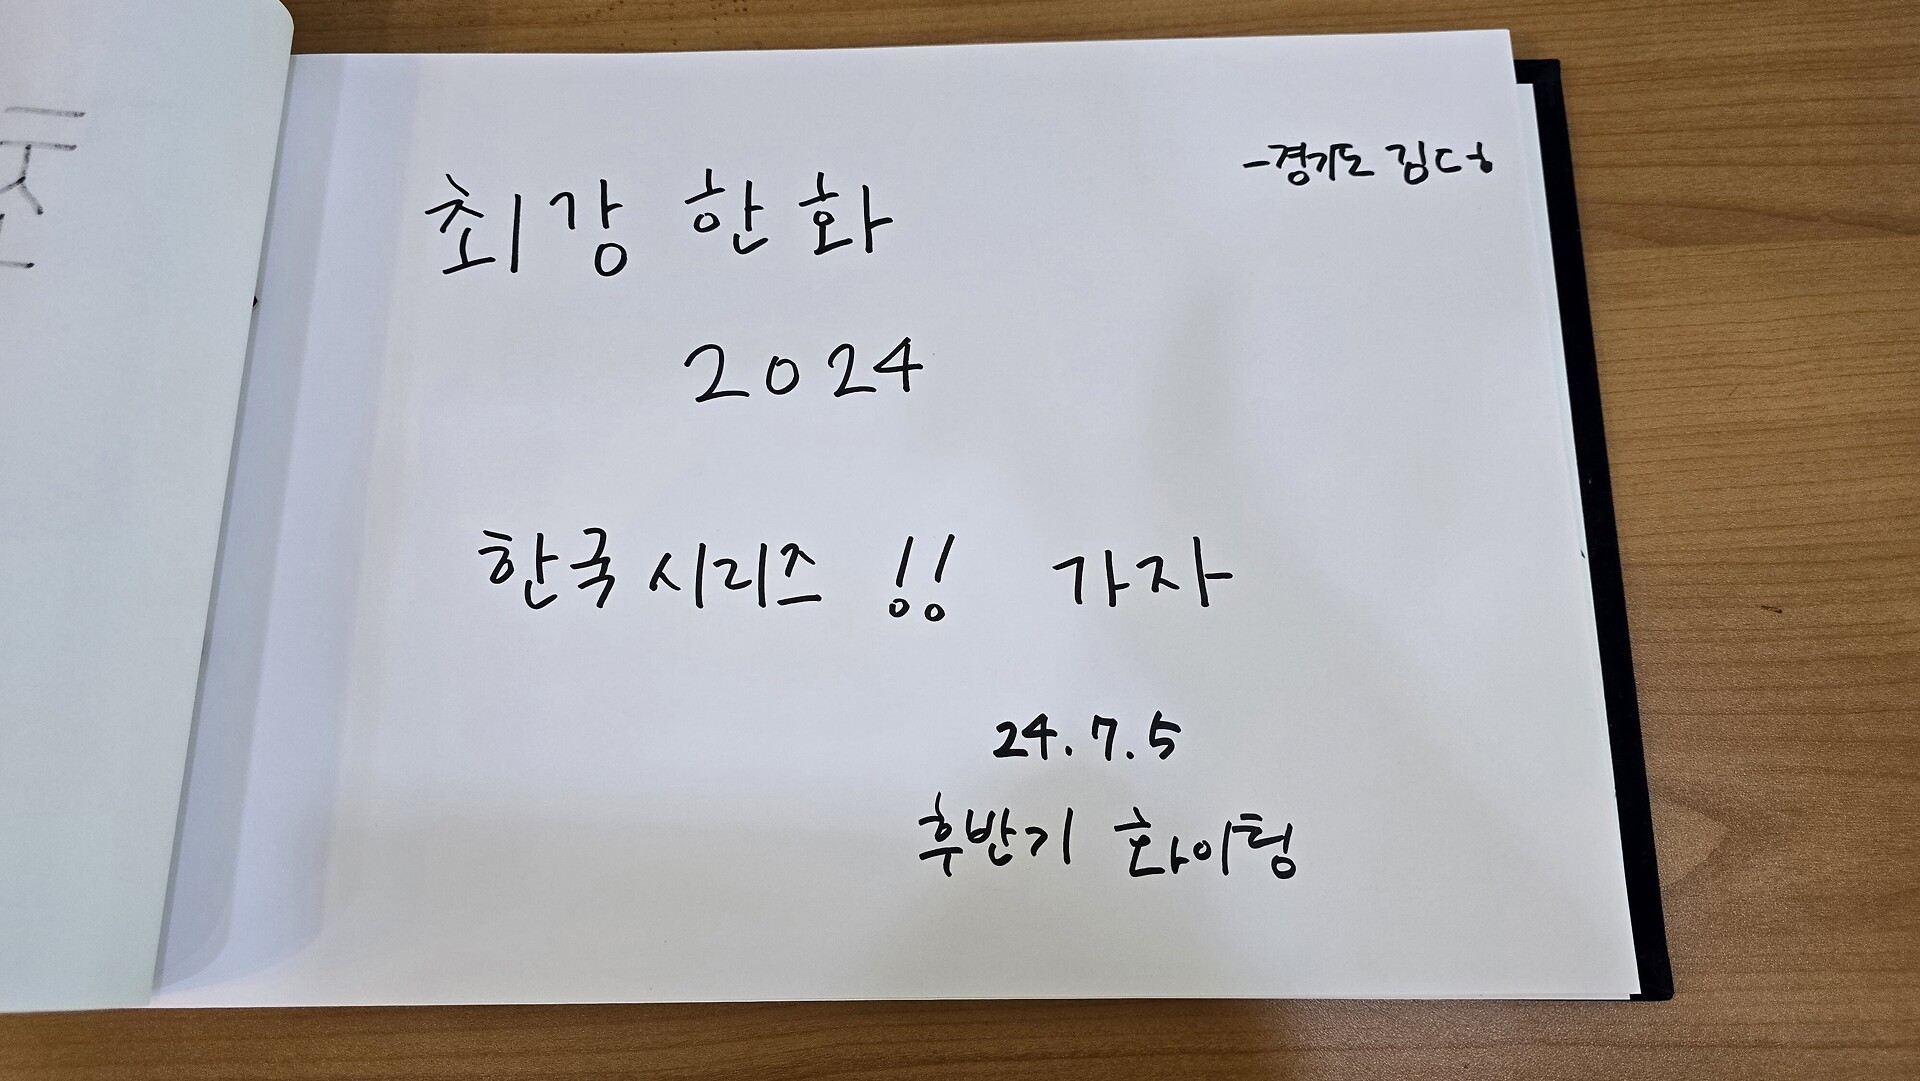 -경기도 김ㄷㅎ
최강 한화
2024
한국시리즈 !! 가자
24.7.5
후반기 화이팅